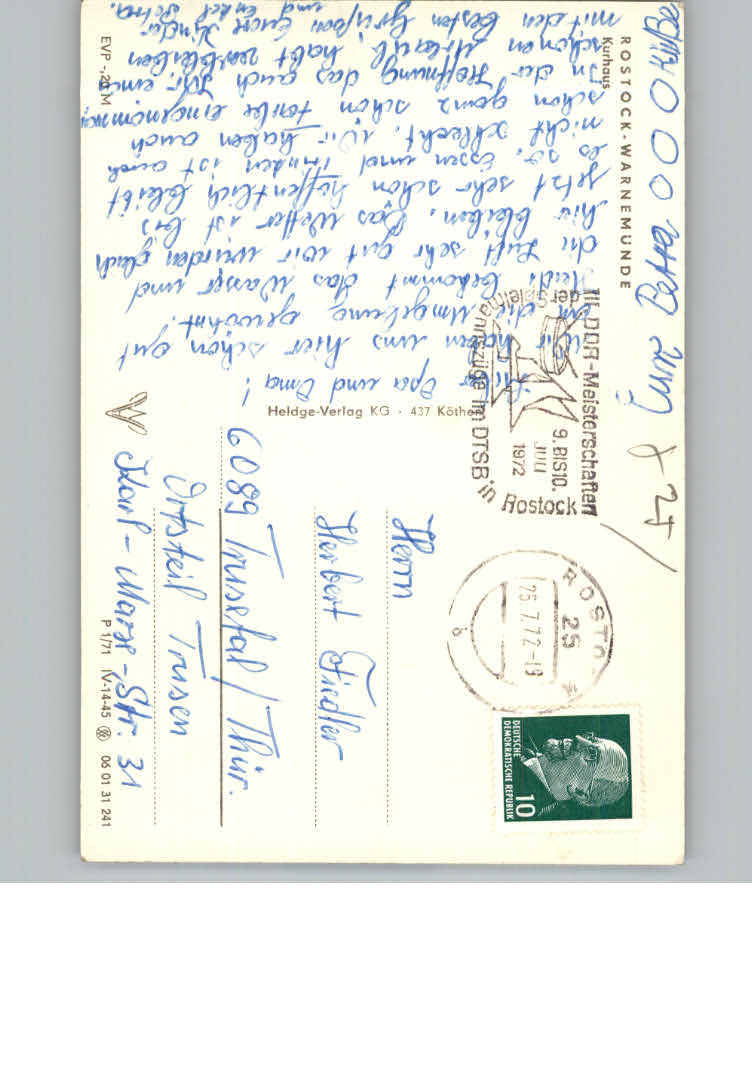 ROSTOCK-WARNEMÜNDE
Kurhaus
Liebe Opa und Oma!
Wir haben uns hier schon gut
an die Umgebung gewöhnt.
Heidi bekommt das Wasser und
die Luft sehr gut wir würden gleich
hier bleiben. Das Wetter ist bis
jetzt sehr schön hoffentlich bleibt
es so. Essen und trinken ist auch
nicht schlecht. Wir haben auch
schon ganz schön farbe eingenommen
In der Hoffnung das auch Ihr einen
schönen Urlaub habt verbleiben
mit den besten Grüßen Eure Kinder
und enkel Petra.
EVP -,20 M
Heldge-Verlag KG · 437 Köthen
III. DDR-Meisterschaften
der Spielmannszüge im DTSB in Rostock
9. BIS 10.
JULI
1972
ROSTO
25
26.7.72-19
b
DEUTSCHE
DEMOKRATISCHE REPUBLIK
10
Herrn
Herbert Fiedler
6089 Trusetal/Thür.
Ortsteil Trusen
Karl-Marx-Str. 31
P 1/71 IV-14-45 06 01 31 241